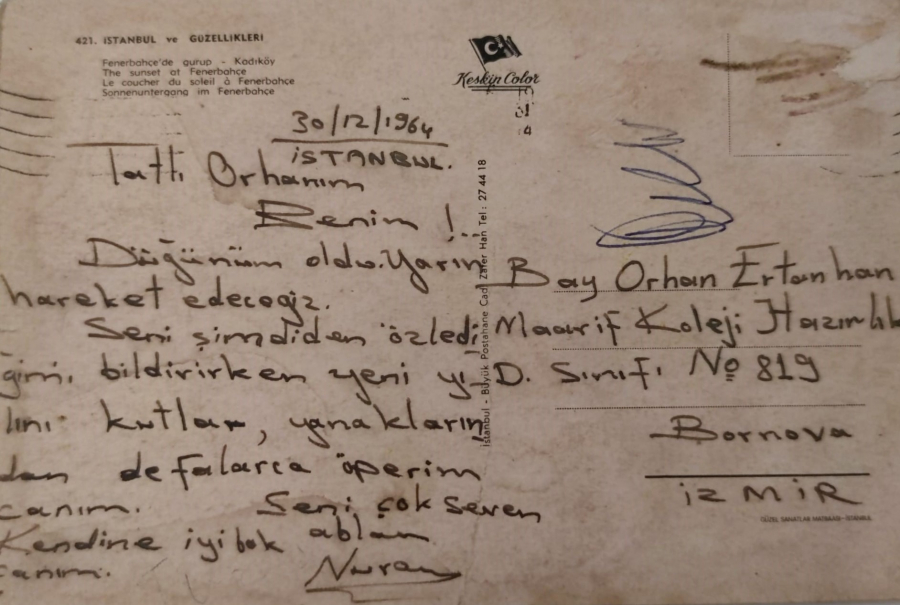 421. İSTANBUL ve GÜZELLİKLERİ
Fenerbahçe'de gurup - Kadıköy
The sunset at Fenerbahçe
Le coucher du soleil à Fenerbahçe
Sonnenuntergang im Fenerbahçe
Keskin Color
30/12/1964
İSTANBUL.
Tatlı Orhanım
Benim !
Düğünüm oldu. Yarın
hareket edeceğiz.
Seni şimdiden özledi
ğimi bildirirken yeni yı
lını kutlar, yanakların
dan defalarca öperim
canım. Seni çok seven
Kendine iyi bak ablan
canım. Nuran
İstanbul - Büyük Postahane Cad. Zafer Han Tel : 27 44 18
Bay Orhan Ertanhan
Maarif Koleji Hazırlık
D. Sınıfı No 819
Bornova
İZMİR
GÜZEL SANATLAR MATBAASI - İSTANBUL